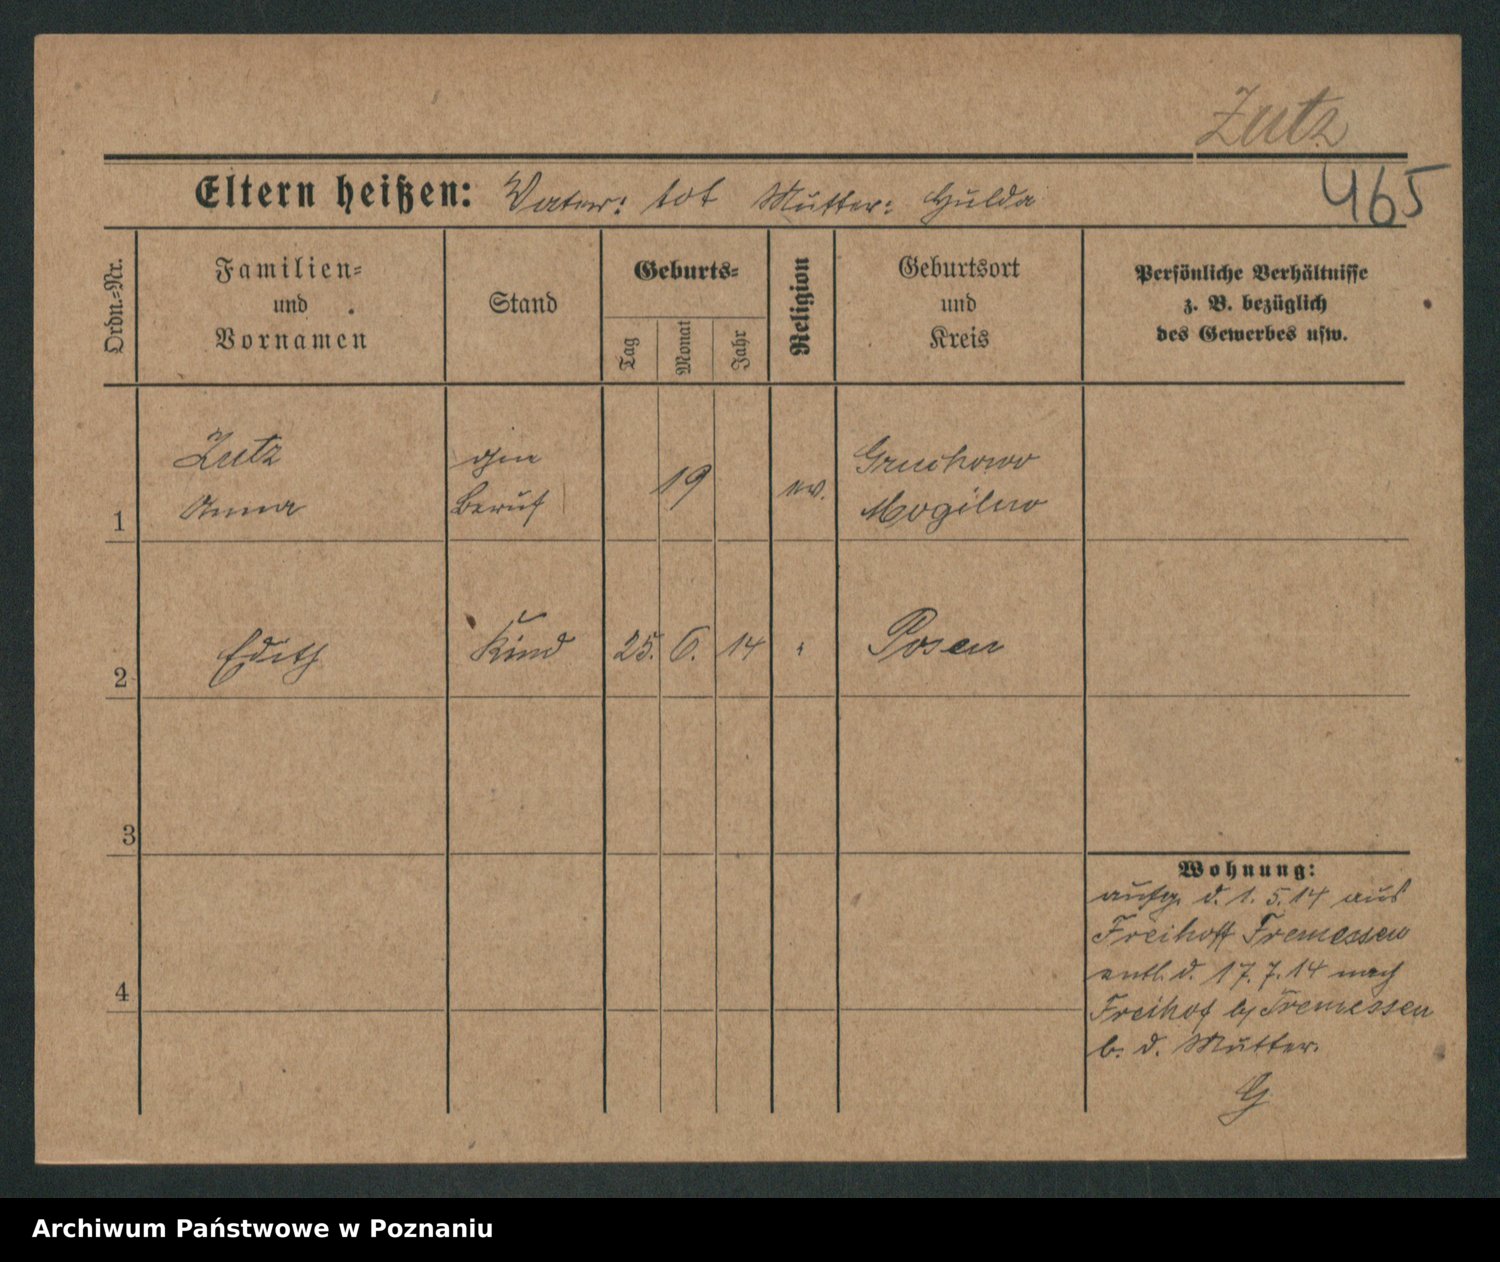 Zutz
465
Eltern heißen: Vater: tot Mutter: Hulda
Ordn.=Nr.
Familien=
und
Vornamen
Stand
Geburts=
Tag
Monat
Jahr
Religion
Geburtsort
und
Kreis
Persönliche Verhältnisse
z. B. bezüglich
des Gewerbes usw.
1
Zutz
Anna
Beruf
19
ev.
Gruchowo
Mogilno
2
Edith
Kind
25. 6. 14
"
Posen
3
4
Wohnung:
aufg. d. 1. 5. 14 aus
Freihoff Tremessen
entl. d. 17. 7. 14 nach
Freihof b/ Tremessen
b. d. Mutter.
G
Archiwum Państwowe w Poznaniu